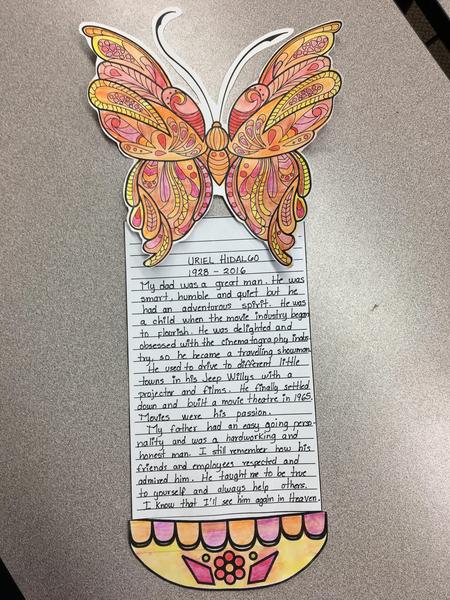 URIEL HIDALGO
1928 - 2016
My dad was a great man. He was
smart, humble and quiet but he
had an adventorous spirit. He was
a child when the movie industry began
to flourish. He was delighted and
obsessed with the cinematography indus-
try, so he became a travelling showman.
He used to drive to different little
towns in his Jeep Willys with a
projector and films. He finally settled
down and built a movie theatre in 1965.
Movies were his passion.
My farther had an easy going perso-
nality and was a hardworking and
honest man. I still remember how his
friends and employees respected and
admired him. He taught me to be true
to yourself and always help others.
I know that I'll see him again in Heaven.